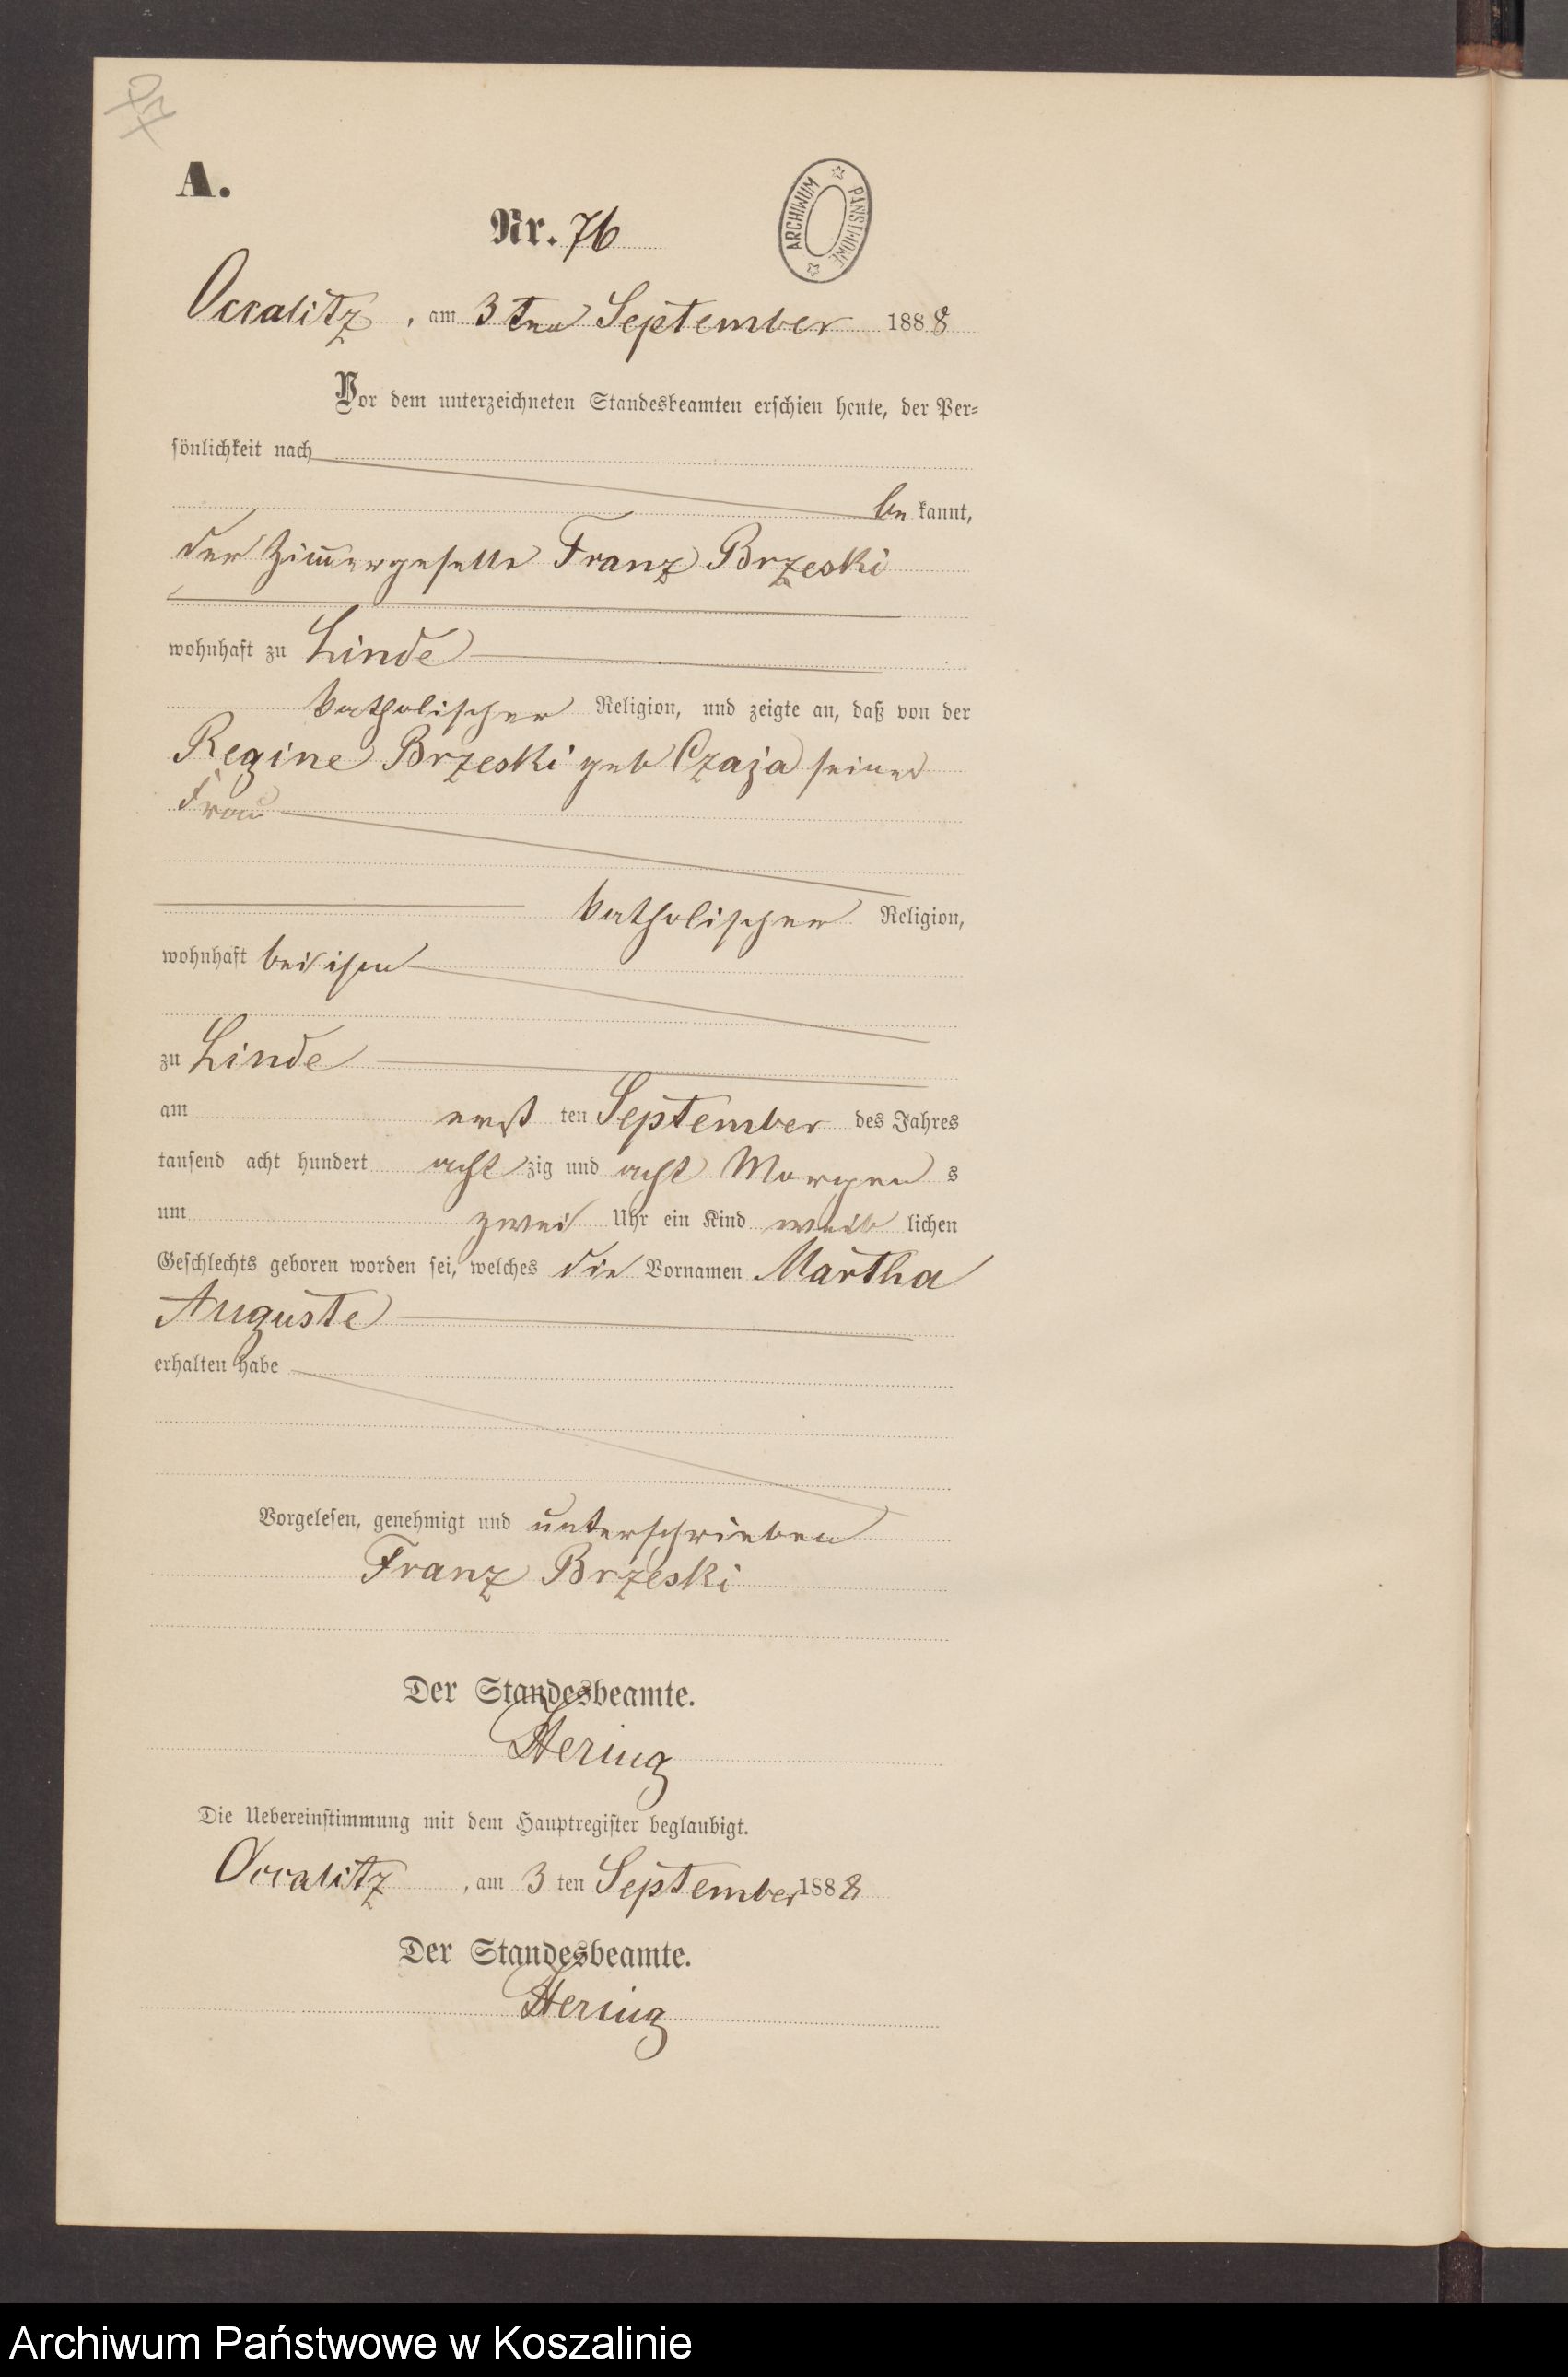 A.
Nr. 76
ARCHIWUM PAŃSTWOWE
Occalitz, am 3 ten September 1888
Vor dem unterzeichneten Standesbeamten erschien heute, der Per=
sönlichkeit nach
be kannt,
der Zimmergeselle Franz Brzeski
wohnhaft zu Linde
katholischer Religion, und zeigte an, daß von der
Regine Brzeski geb Czaja seiner
Frau
katholischer Religion,
wohnhaft bei ihm
zu Linde
am erst ten September des Jahres
tausend acht hundert acht zig und acht Morgen s
um zwei Uhr ein Kind weib lichen
Geschlechts geboren worden sei, welches die Vornamen Martha
Auguste
erhalten habe
Vorgelesen, genehmigt und unterschrieben
Franz Brzeski
Der Standesbeamte.
Hering
Die Uebereinstimmung mit dem Hauptregister beglaubigt.
Occalitz, am 3 ten September 1888
Der Standesbeamte.
Hering
Archiwum Państwowe w Koszalinie